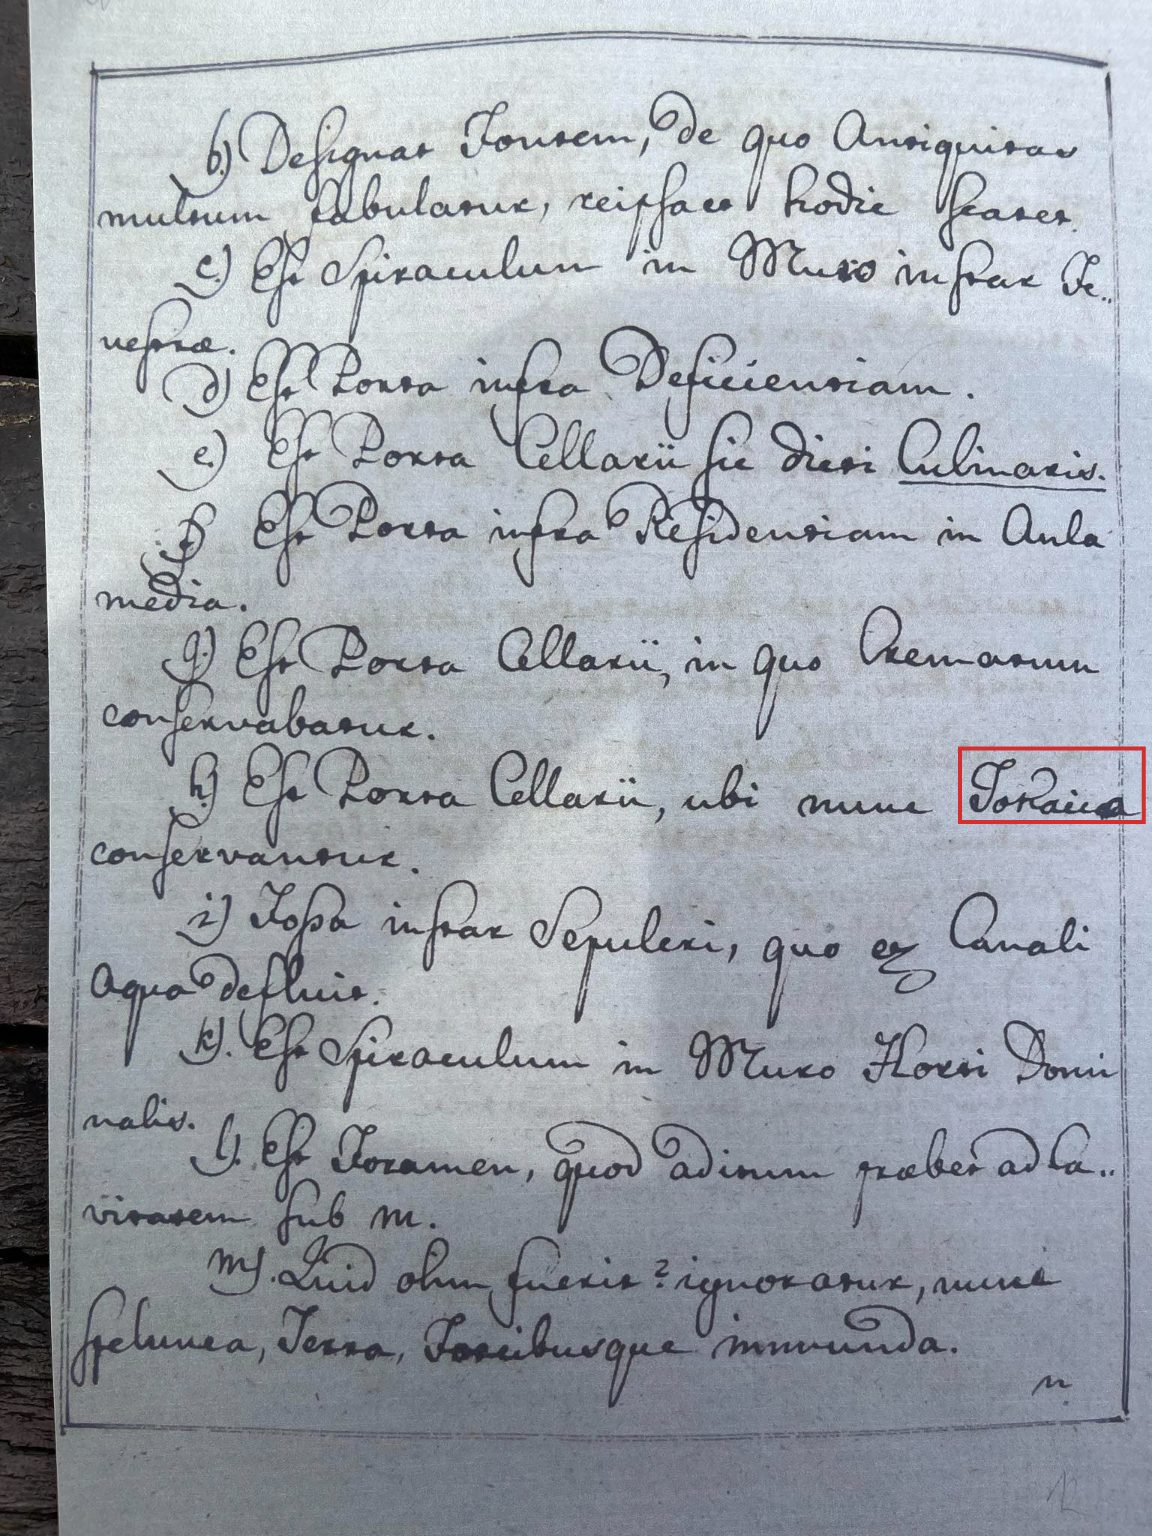 b.) Designat Fontem, de quo Antiquitas
multum fabulatur, reipsa et hodie scatet.
c.) Est Spiraculum in Muro instar Fe..
nestræ.
d) Est Porta infra Deficientiam.
e.) Est Porta Cellarii sic dicti Culinaris.
f.) Est Porta infra Residentiam in Aula
media.
g.) Est Porta Cellarii, in quo Crematum
conservabatur.
h.) Est Porta Cellarii, ubi nunc Tokaica
conservantur.
i) Fossa instar Sepulcri, quo ex Canali
Aqua defluit.
k). Est Spiraculum in Muro Horti Domi
nalis.
l). Est Foramen, quod aditum præbet ad Ca..
vitatem sub m.
m). Quid olim fuerit? ignoratur, nunc
spelunca, Terra, immunda.
n.